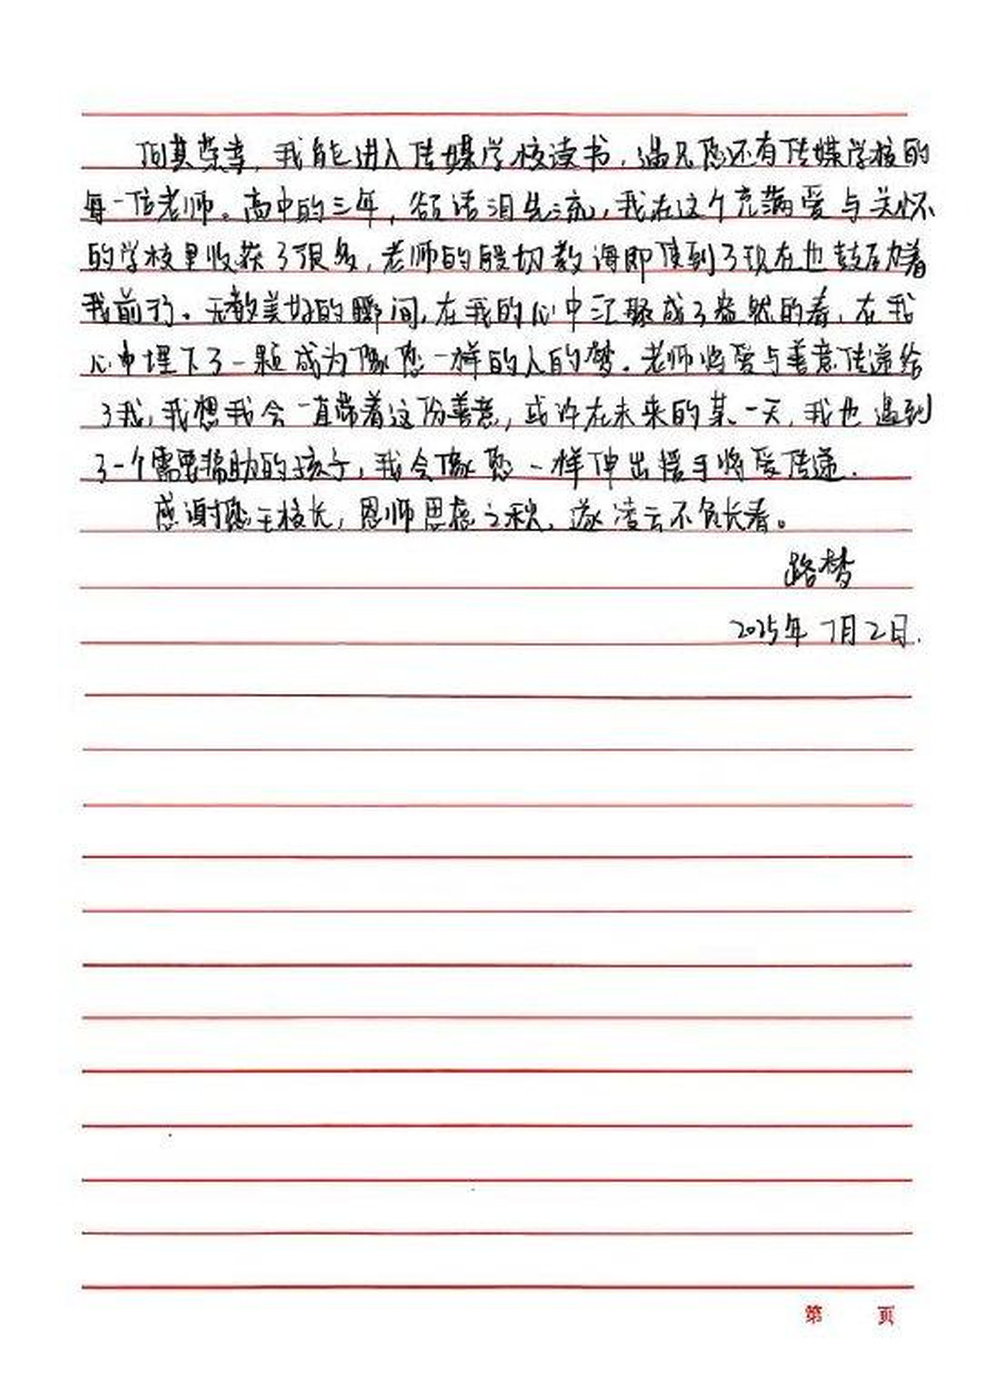 何其荣幸，我能进入传媒学校读书，遇见您还有传媒学校的
每一位老师。高中的三年，欲语泪先流，我在这个充满爱与关怀
的学校里收获了很多，老师的殷切教诲即使到了现在也鼓励着
我前行。无数美好的瞬间，在我的心中汇聚成了盎然的春，在我
心中埋下了一颗成为像您一样的人的梦。老师将爱与善意传递给
了我，我想我会一直带着这份善意，或许在未来的某一天，我也遇到
了一个需要帮助的孩子，我会像您一样伸出援手将爱传递.
感谢您王校长，恩师恩惠之秋，逐凌云不负长春。
路梦
2025年7月2日.
第 页